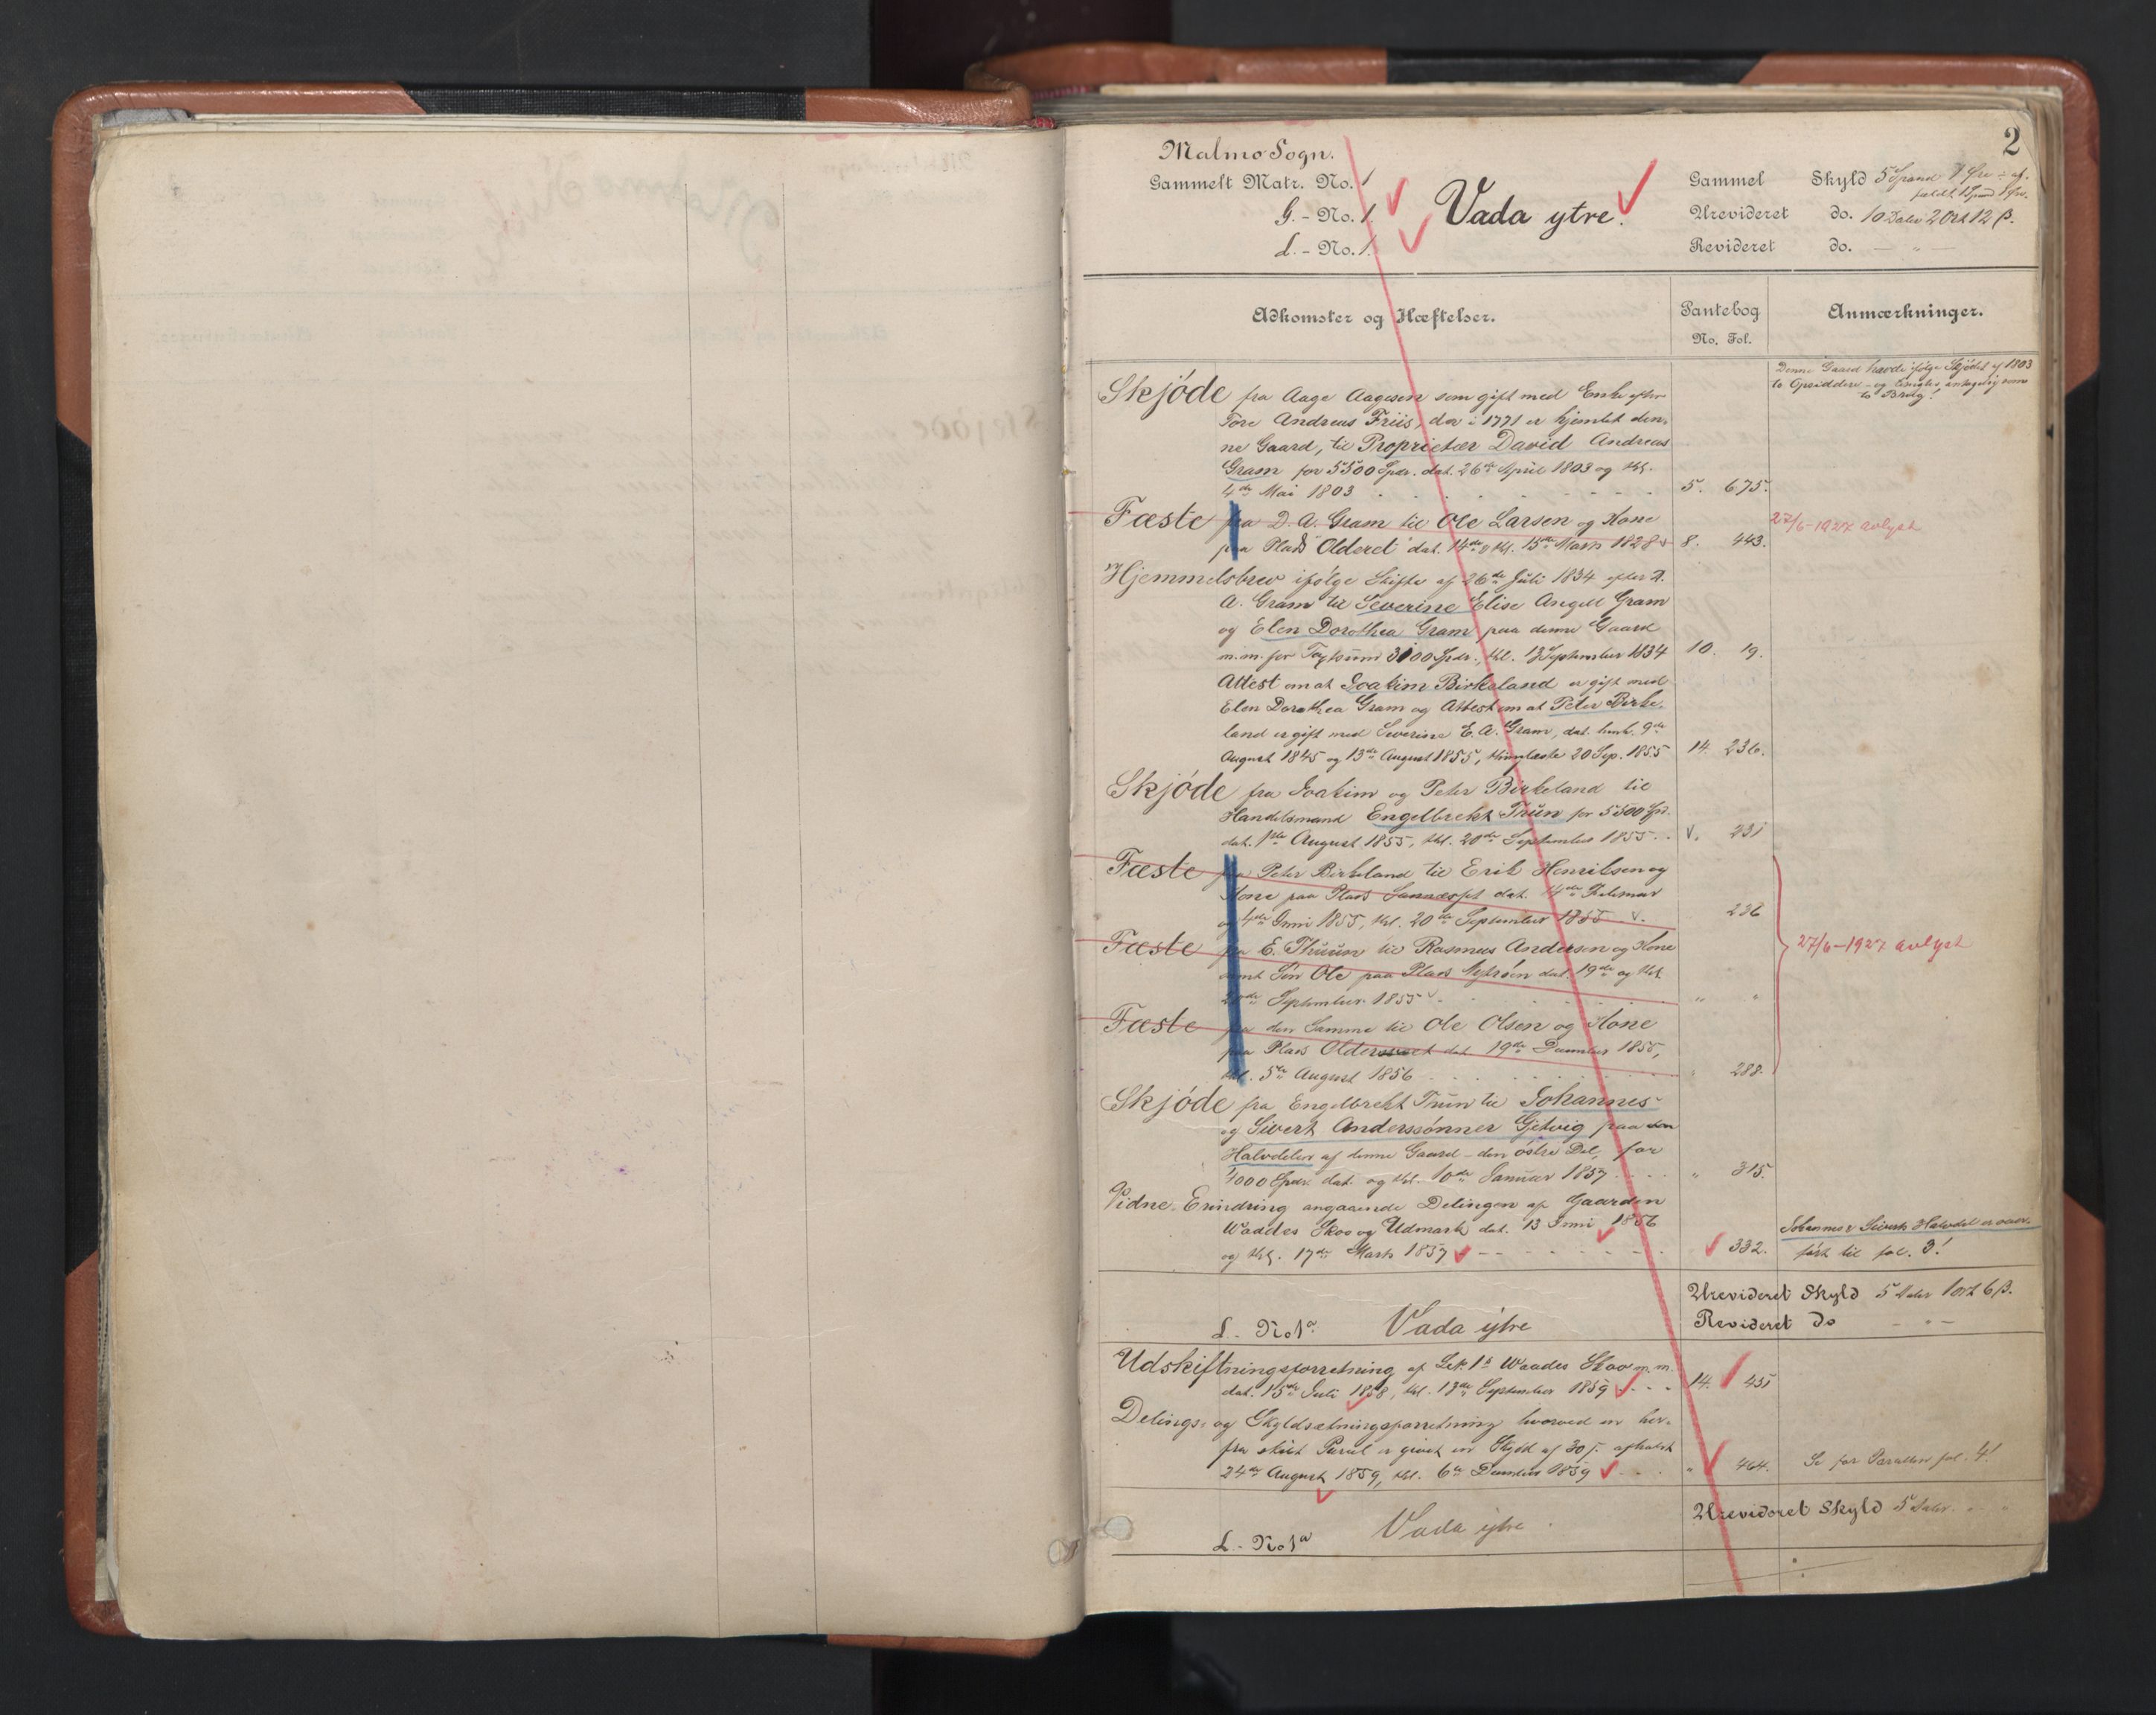 2
Malmo Sogn.
Gammelt Matr. No. 1
G. - No. 1.
L. - No. 1.
Vada ytre.
Gammel Skyld 5 Spand 1 Øre ÷ af-
faldt 1 Spand 1 Øre.
Urevideret do. 10 Daler 2 Ort 12 β.
Revideret do. — " —
Adkomster og Hæftelser.
Pantebog
No. Fol.
Anmærkninger.
Denne Gaard havde ifølge Skjødet af 1803
to Opsiddere - og to Brug!
Skjöde fra Aage Aagesen som gift med Enke efter
Tore Andreas Friis, der i 1771 er hjemlet den-
ne Gaard, til Proprietær David Andreas
Gram for 5500 Spdr. dat. 26de April 1803 og thl.
4de Mai 1803 5. 675.
Fæste fra D. A. Gram til Ole Larsen og Kone
paa Plads Olderet dat. 14de og thl. 15de Marts 1828 8. 443.
27/6-1927 avlyst
Hjemmelsbrev ifølge Skifte af 26de Juli 1834 efter D.
A. Gram til Severine Elise Angell Gram
og Elen Dorothea Gram paa denne Gaard
m.m. for 3100 Spdr., thl. 13 September 1834 10. 19.
Attest om at Joakim Birkeland er gift med
Elen Dorothea Gram og Attest om at Peter Birke-
land er gift med Severine E. A. Gram, dat. henh. 9de
August 1845 og 13de August 1855, thinglæste 20 Sep. 1855 14. 236.
Skjöde fra Joakim og Peter Birkeland til
Handelsmand Engelbrekt Thun for 5500 Spd.
dat. 1ste August 1855, thl. 20de September 1855 231
Fæste fra Peter Birkeland til Erik Henriksen og
Kone paa Plads dat. 14de Februar
og 4de Juni 1855, thl. 20de September 1855 236
Fæste fra E. Thuun til Rasmus Andersen og Kone
samt Søn Ole paa Plads dat. 19de og thl.
20de September 1855 " "
27/6-1927 avlyst
Fæste fra den Samme til Ole Olsen og Kone
paa Plads dat. 19de December 1855,
thl. 5te August 1856 " 288.
Skjöde fra Engelbrekt Thun til Johannes
og Sivert Anderssønner Gjetvig paa den
Halvdelen af denne Gaard - den østre Del, for
4000 Spdr. dat. og thl. 10de Januar 1857 " 315.
Vidne-Erindring angaaende Delingen af Gaarden
Waddes Skov og Udmark dat. 13 Juni 1856
og thl. 17de Marts 1857 332.
Johannes & Siverts Halvdel er over-
ført til fol. 3!
L. - No 1a Vada ytre
Urevideret Skyld 5 Daler 1 ort 6 β.
Revideret do — " —
Udskiftningsforretning af Løb. 1a Waades Skov m.m.
dat. 15de Juli 1858, thl. 13de September 1859 14. 451
Delings- og Skyldsætningsforretning hvorved en her-
fra skilt Parcel er givet en Skyld af 30 β. afholdt
24de August 1859, thl. 6te December 1859 " 464.
Se for Parcellen fol. 4!
L. - No 1a Vada ytre
Urevideret Skyld 5 Daler. " "